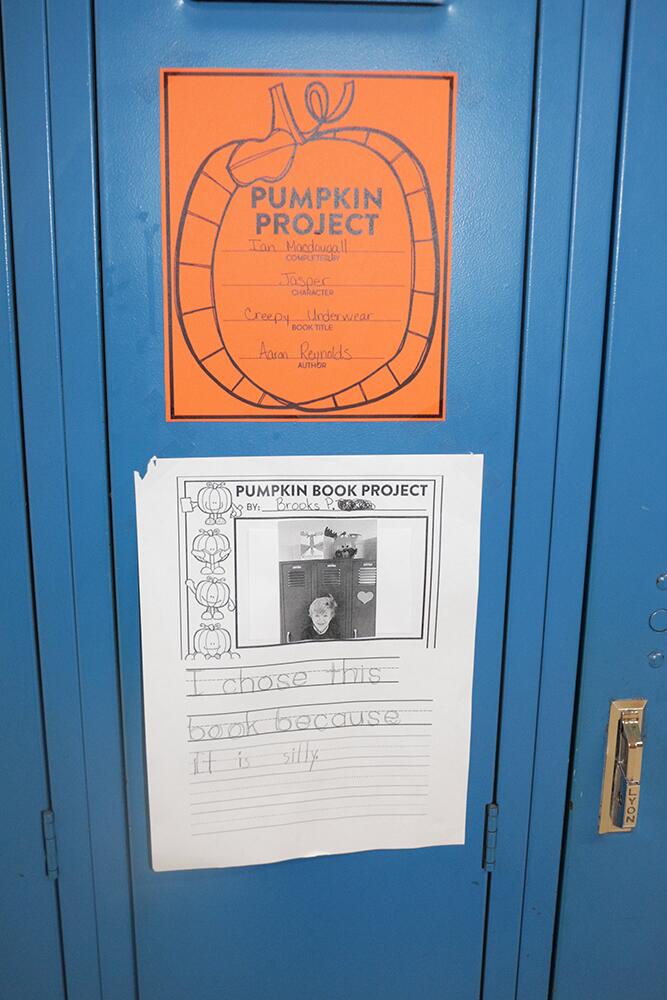 PUMPKIN
PROJECT
Ian Macdougall
COMPLETED BY
Jasper
CHARACTER
Creepy Underwear
BOOK TITLE
Aaron Reynolds
AUTHOR
PUMPKIN BOOK PROJECT
BY: Brooks P.
I chose this
book because
it is silly.
LYON